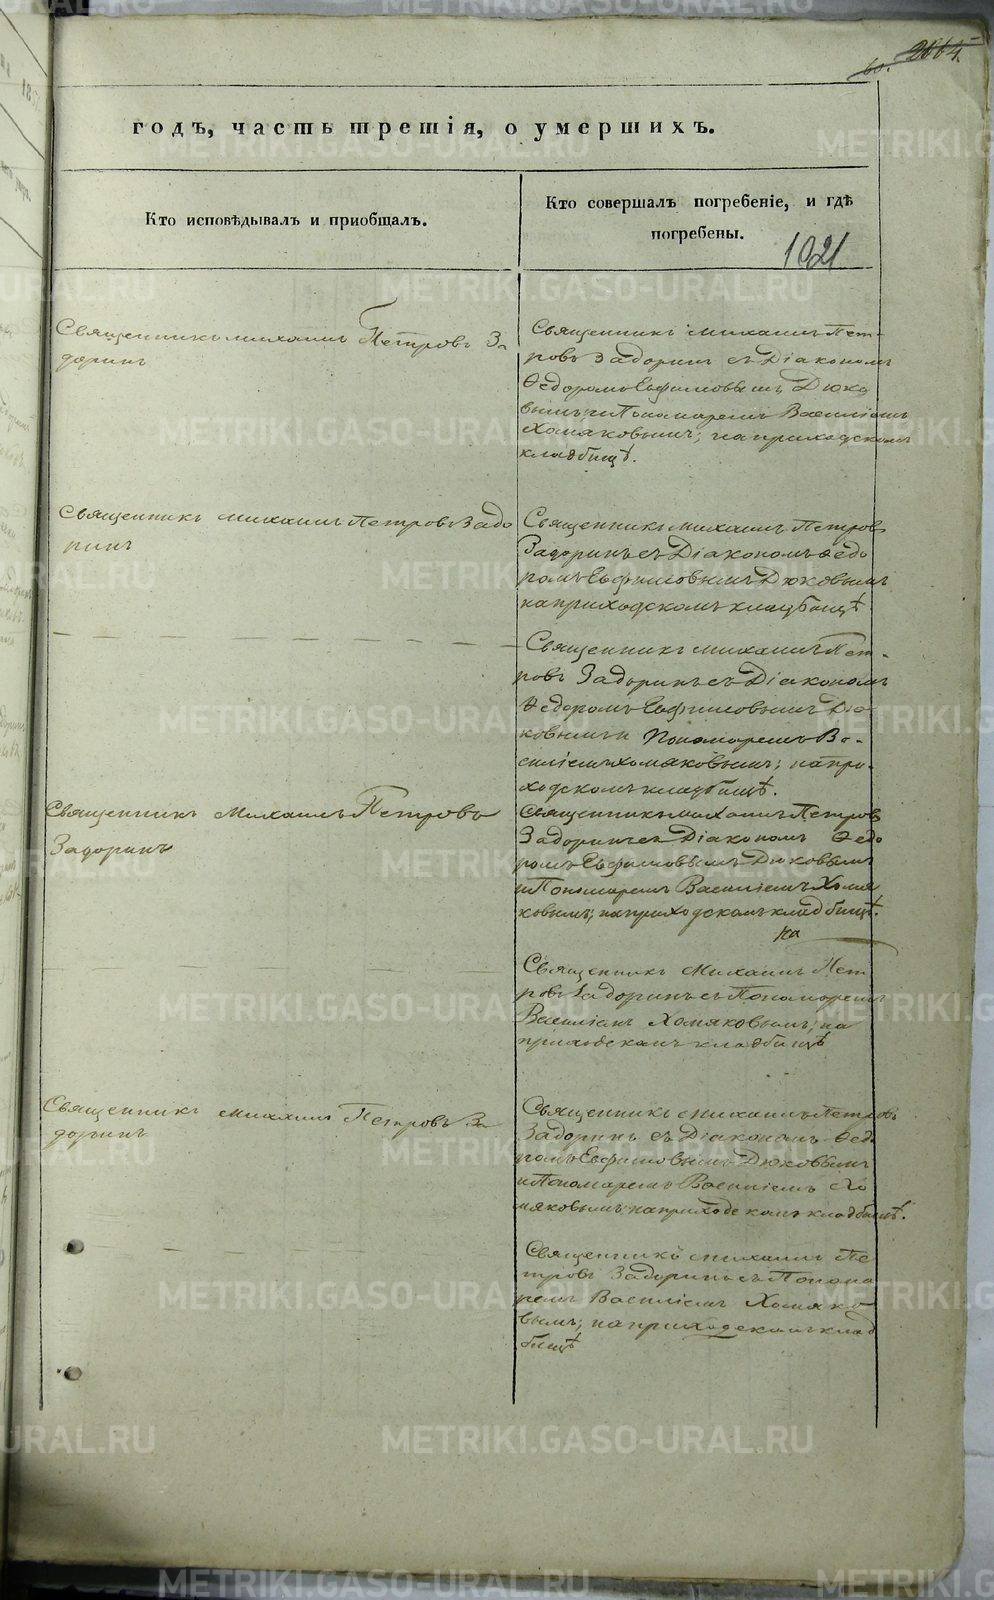 годъ, часть третія, о умершихъ.
Кто исповѣдывалъ и приобщалъ.
Кто совершалъ погребеніе, и гдѣ
погребены.
1021
Священникъ Михаилъ Петровъ За
доринъ
Священникъ Михаилъ Пет-
ровъ Задоринъ съ Діакономъ
Ѳедоромъ Евфимовымъ Дюко
вымъ и Пономаремъ Василіемъ
Хомяковымъ; на приходскомъ
кладбищѣ.
Священникъ Михаилъ Петровъ Задо
ринъ
Священникъ Михаилъ Петровъ
Задоринъ съ Діакономъ Ѳедо
ромъ Евфимовымъ Дюковымъ
на приходскомъ кладбищѣ
Священникъ Михаилъ Пет-
ровъ Задоринъ съ Діакономъ
Ѳедоромъ Евфимовымъ Дю
ковымъ и Пономаремъ Ва-
силіемъ Хомяковымъ; на при-
ходскомъ кладбищѣ.
Священникъ Михаилъ Петровъ
Задоринъ
Священникъ Михаилъ Петровъ
Задоринъ съ Діакономъ Ѳедо
ромъ Евфимовымъ Дюковымъ
и Пономаремъ Василіемъ Хомя
ковымъ; на приходскомъ кладбищѣ.
на
Священникъ Михаилъ Пет
ровъ Задоринъ съ Пономаремъ
Василіемъ Хомяковымъ; на
приходскомъ кладбищѣ
Священникъ Михаилъ Петровъ За
доринъ
Священникъ Михаилъ Петровъ
Задоринъ съ Діакономъ Ѳедо
ромъ Евфимовымъ Дюковымъ
и Пономаремъ Василіемъ Хо
мяковымъ; на приходскомъ кладбищѣ.
Священникъ Михаилъ Пе
тровъ Задоринъ съ Понома
ремъ Василіемъ Хомяко
вымъ; на приходскомъ клад
бищѣ
METRIKI.GASO-URAL.RU